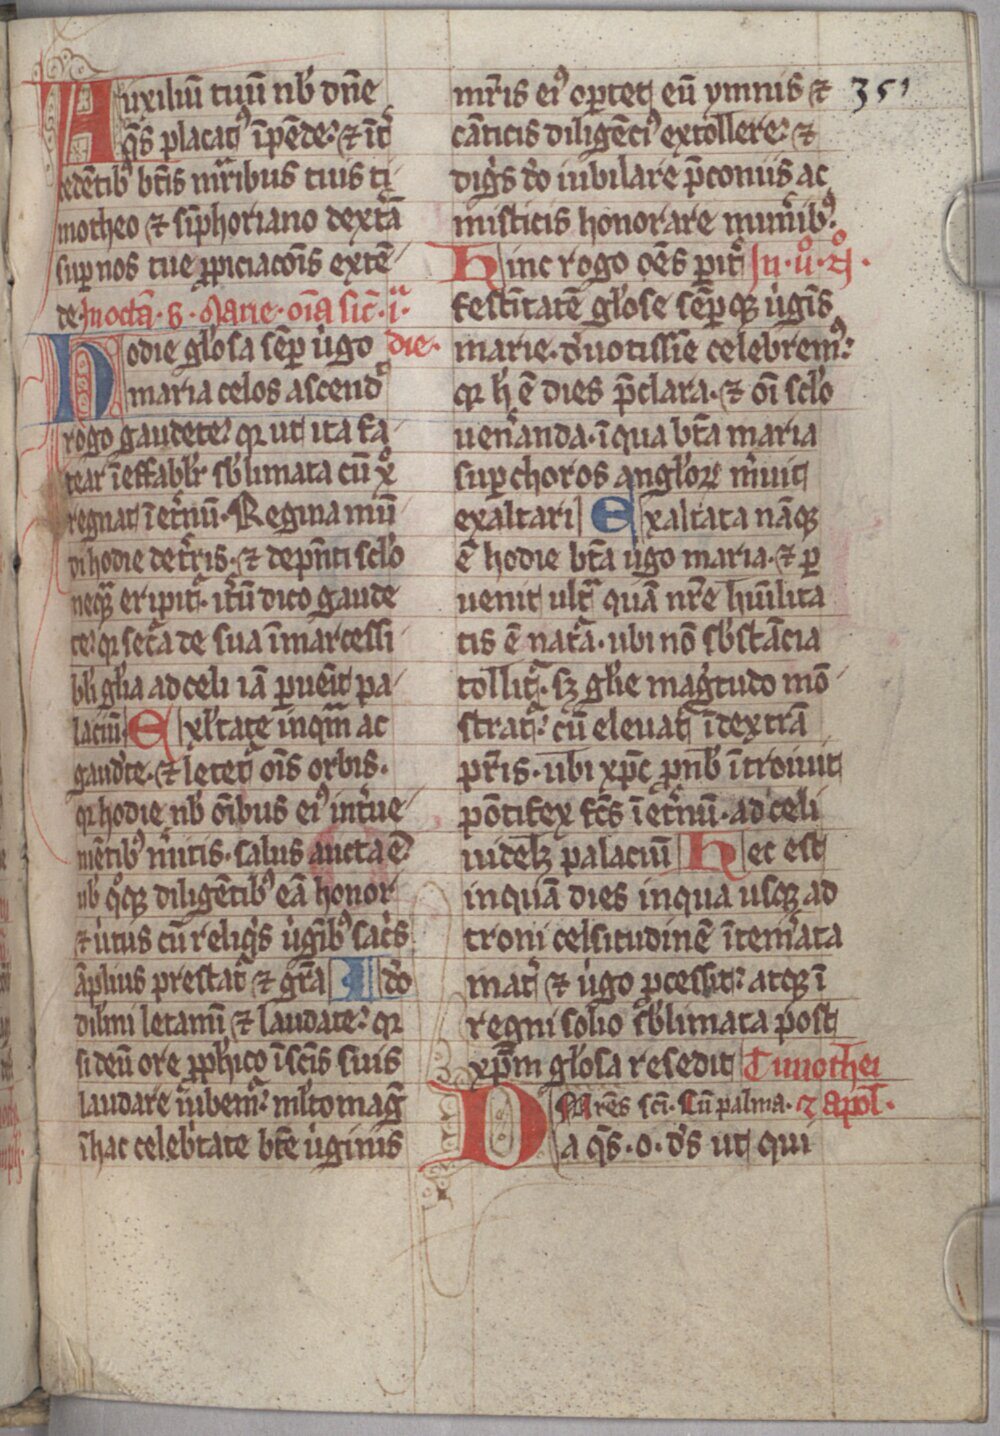 Auxiliū tuū nb̄ dn̄e
q̄s placatꝰ īpēde: & īt̄
cedētibꝫ bt̄is mr̄ibus tuis ti-
motheo & sīphoriano dextā
sup nos tue ꝓpiciacōis extē-
de. In octā. s. Marie. oīa sic̄ .i.ᵃ
die.
Hodie gl̓osa sēꝑ u̇go
maria celos ascend̓
rogo gaudete: qꝛ ut ita fa-
tear īeffabl̓r sb̓limata cū xᵒ
regnat īet̓nū. Regina mū
di hodie det̓ris. & dep̄nti scl̓o
neqᵃꝫ eripit᷑. it̓ū dico gaude
te: qꝛ sec̄a de sua īmarcessi-
bl̓i gl̓ia ad celi iā ꝑuēit pa-
laciū. Exl̓tate inqᵃm ac
gaud̓te. & letet᷑ oīs orbis.
qꝛ hodie nb̄ oībus eiꝰ int̓ue-
niētibꝰ m̓itis. salus aucta ē.
ub̓ qᵒqꝫ diligētibꝰ eā honor
& u̇tus cū reliqⁱs u̇gībꝰ sac̄s
āplius prestat᷑ & gr̄a Id̓o
dil̄mi letam̄i & laudate: qꝛ
si deū ore ꝓph̓ico īsc̄is suis
laudare iubem᷑: ml̓to mag̓
ī hac celeb̓tate bt̄e u̇ginis
mr̄is eiꝰ oꝑtet eū ymnis &
cāticis diligēciꝰ extollere: &
dig̓s d̓o iubilare p̄coniis ac
misticis honorare mun̓ibꝰ.
Hinc rogo oēs pit̓ In. uᵒ. nᵒ.
festītatē gl̓ose sēꝑqꝫ u̇gīs
marie. d̓uotissīe celebremꝰ:
qꝛ h̓ ē dies p̄clara. & oī scl̓o
uen̓anda. ī qua bt̄a maria
sup choros angl̓oꝝ m̓uit
exaltari Exaltata nāqꝫ
ē hodie bt̄a u̇go maria. & ꝑ
uenit ultᵃ quā nr̄e hūilita
tis ē nat̄a. ubi nō sb̓stācia
tollit᷑. sꝫ gl̓ie magⁱtudo mō-
strat᷑: cū eleuat᷑ ī dextrā
pr̄is. ubi xp̄c ꝓ nb̄ ītroiuit
pōtifex fc̄s ī et̓nū. ad celi
uidelꝫ palaciū Hec est
inquā dies in qua usqꝫ ad
troni celsitudinē ītem̓ata
mat̓ & u̇go ꝓcessit: atqꝫ ī
regni solio sb̓limata post
xp̄m gl̓osa resedit Timothei
& apol̓.
Mr̄es sc̄i. Cū palma.
Da q̄s. o. d̄s ut qui
351